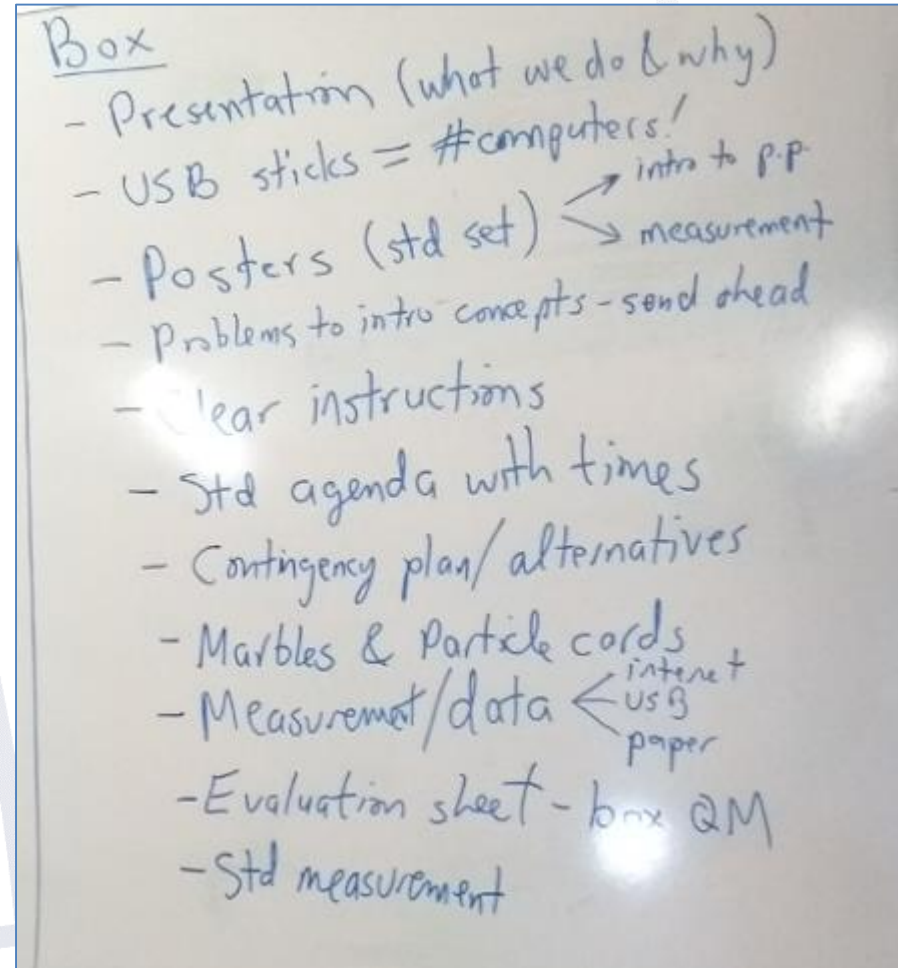 Box
- Presentation (what we do & why)
- USB sticks = #computers!
- Posters (std set) → intro to p.p.
→ measurement
- Problems to intro concepts - send ahead
- lear instructions
- Std agenda with times
- Contingency plan/alternatives
- Marbles & Particle cards
- Measuremet/data < internet
USB
paper
- Evaluation sheet - box QM
- Std measurement